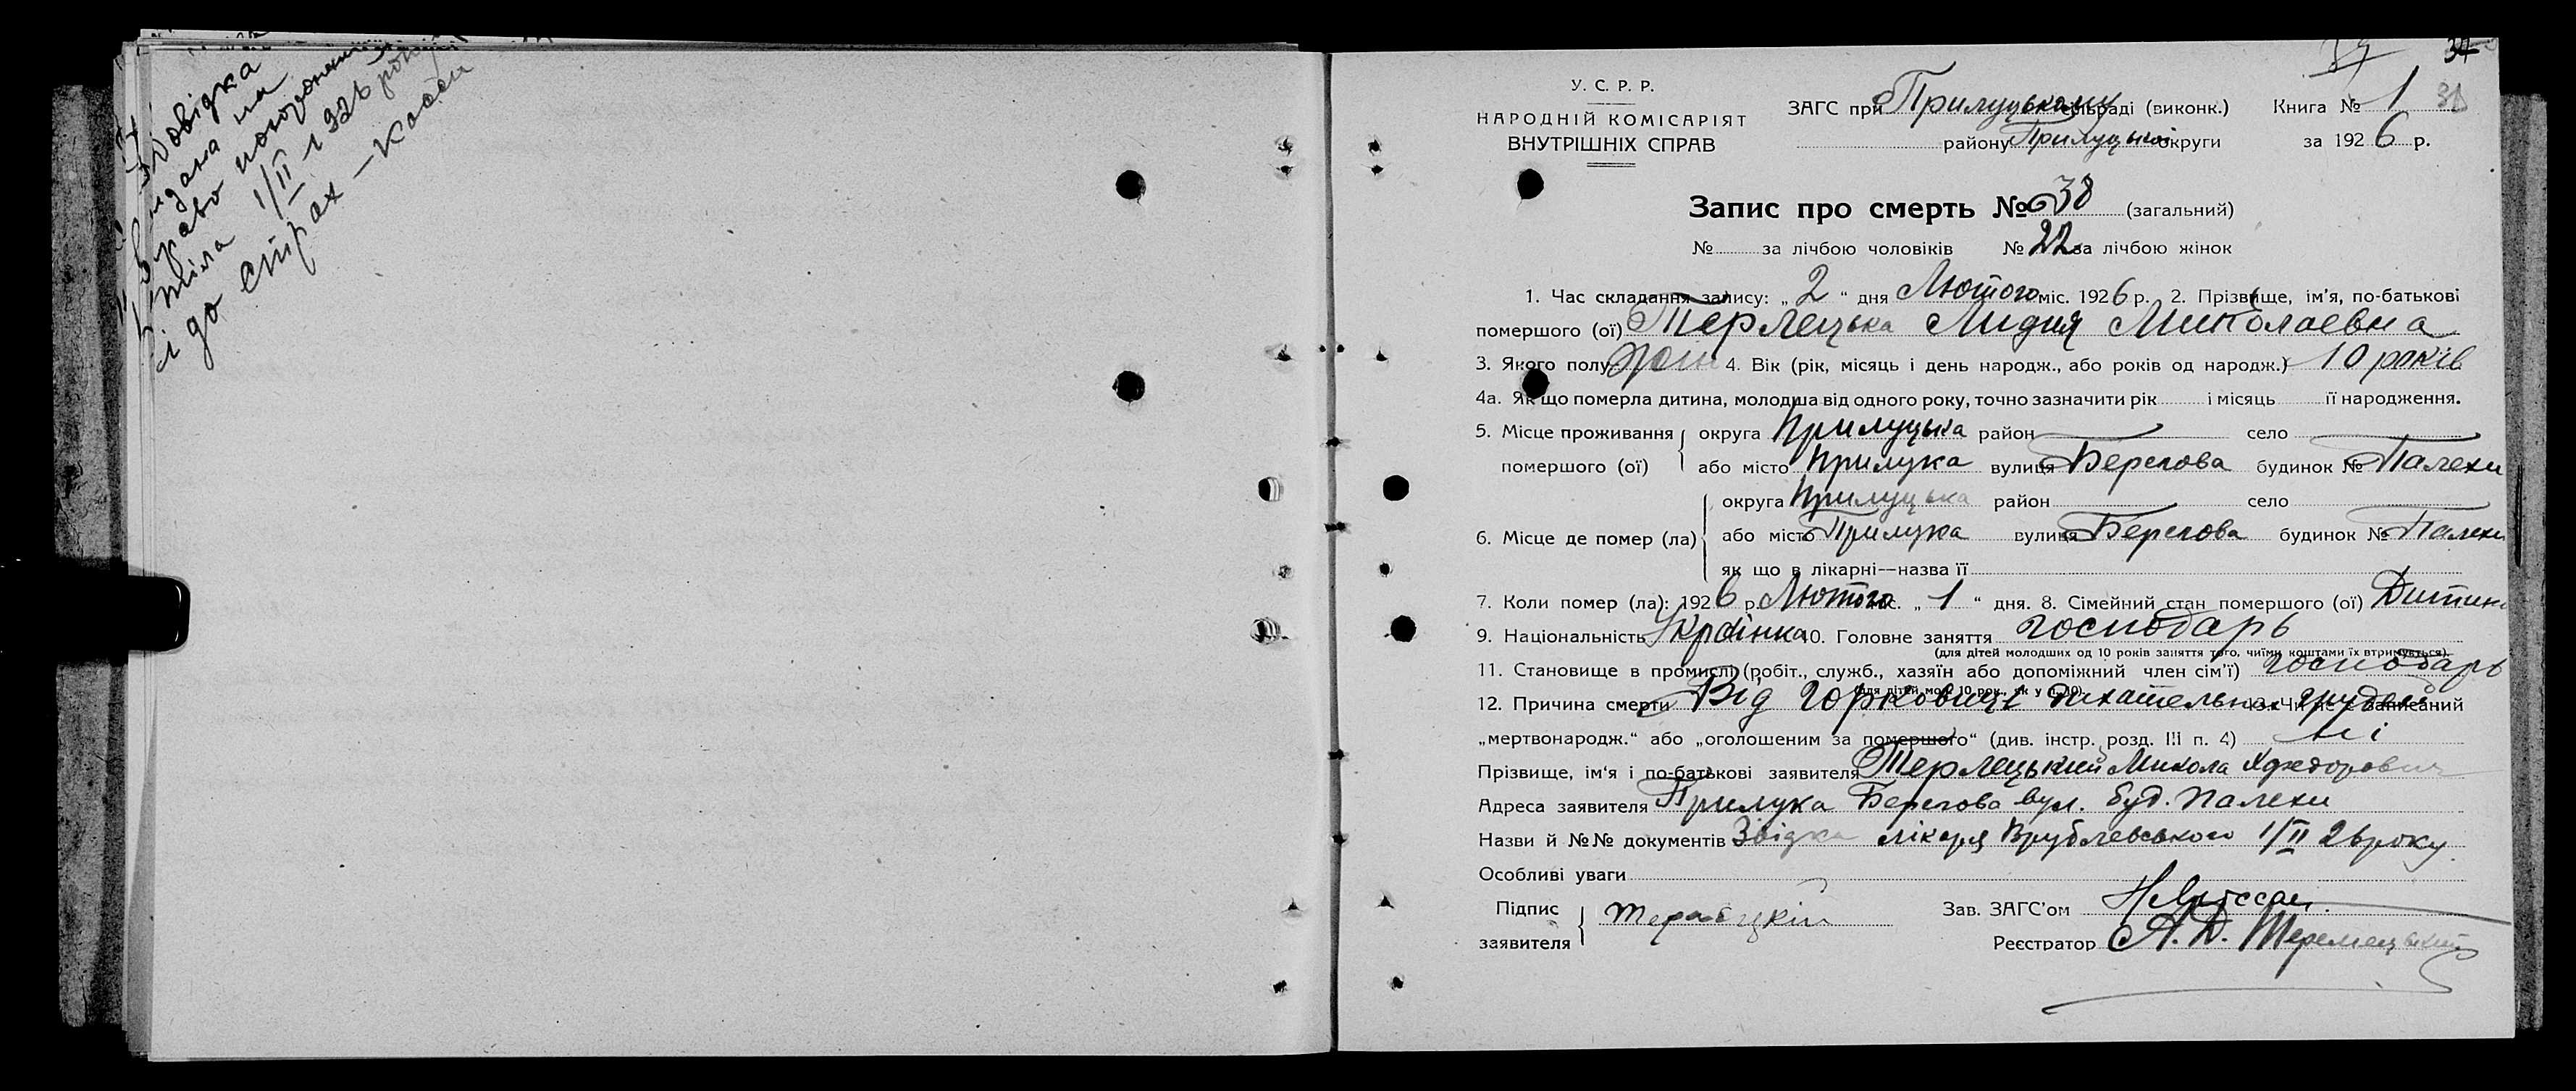 Довідка
видана на
право похоронення
тіла 1/II 1926 року
і до страх-каси
34
1
У. С. Р. Р.
НАРОДНІЙ КОМІСАРІЯТ
ВНУТРІШНІХ СПРАВ
ЗАГС при Прилуцькому сільраді (виконк.) Книга № 1
району Прилуцької округи за 1926 р.
Запис про смерть № 38 (загальний)
№ за лічбою чоловіків № 22 за лічбою жінок
1. Час складання запису: „2“ дня Лютого міс. 1926 р. 2. Прізвище, ім'я, по-батькові
помершого (ої) Терлецька Лидия Миколаевна
3. Якого полу жін 4. Вік (рік, місяць і день народж., або років од народж.) 10 років
4а. Як що померла дитина, молодша від одного року, точно зазначити рік і місяць її народження.
5. Місце проживання округа Прилуцька район село
помершого (ої) або місто Прилука вулиця Берегова будинок № Палехи
округа Прилуцька район село
6. Місце де помер (ла) або місто Прилука вулиця Берегова будинок № Палехи
як що в лікарні—назва її
7. Коли помер (ла): 1926 р. Лютого міс. „1“ дня. 8. Сімейний стан помершого (ої) Дитина
9. Національність Украінка 10. Головне заняття господарь
(для дітей молодших од 10 років заняття того, чиїми коштами їх втримується).
11. Становище в промислі (робіт., служб., хазяїн або допоміжний член сім'ї) господарь
(для дітей мол. 10 рок., як у п. 10).
12. Причина смерти Від дихательних 13. Чи не є записаний
„мертвонародж.“ або „оголошеним за помершого“ (див. інстр. розд. III п. 4) ні
Прізвище, ім'я і по-батькові заявителя Терлецький Микола
Адреса заявителя Прилука Берегова вул. буд. Палехи
Назви й №№ документів Звідка лікаря Врублевського 1/II 26 року.
Особливі уваги
Підпис
заявителя Терлецкій
Зав. ЗАГС'ом
Реєстратор А. Д.